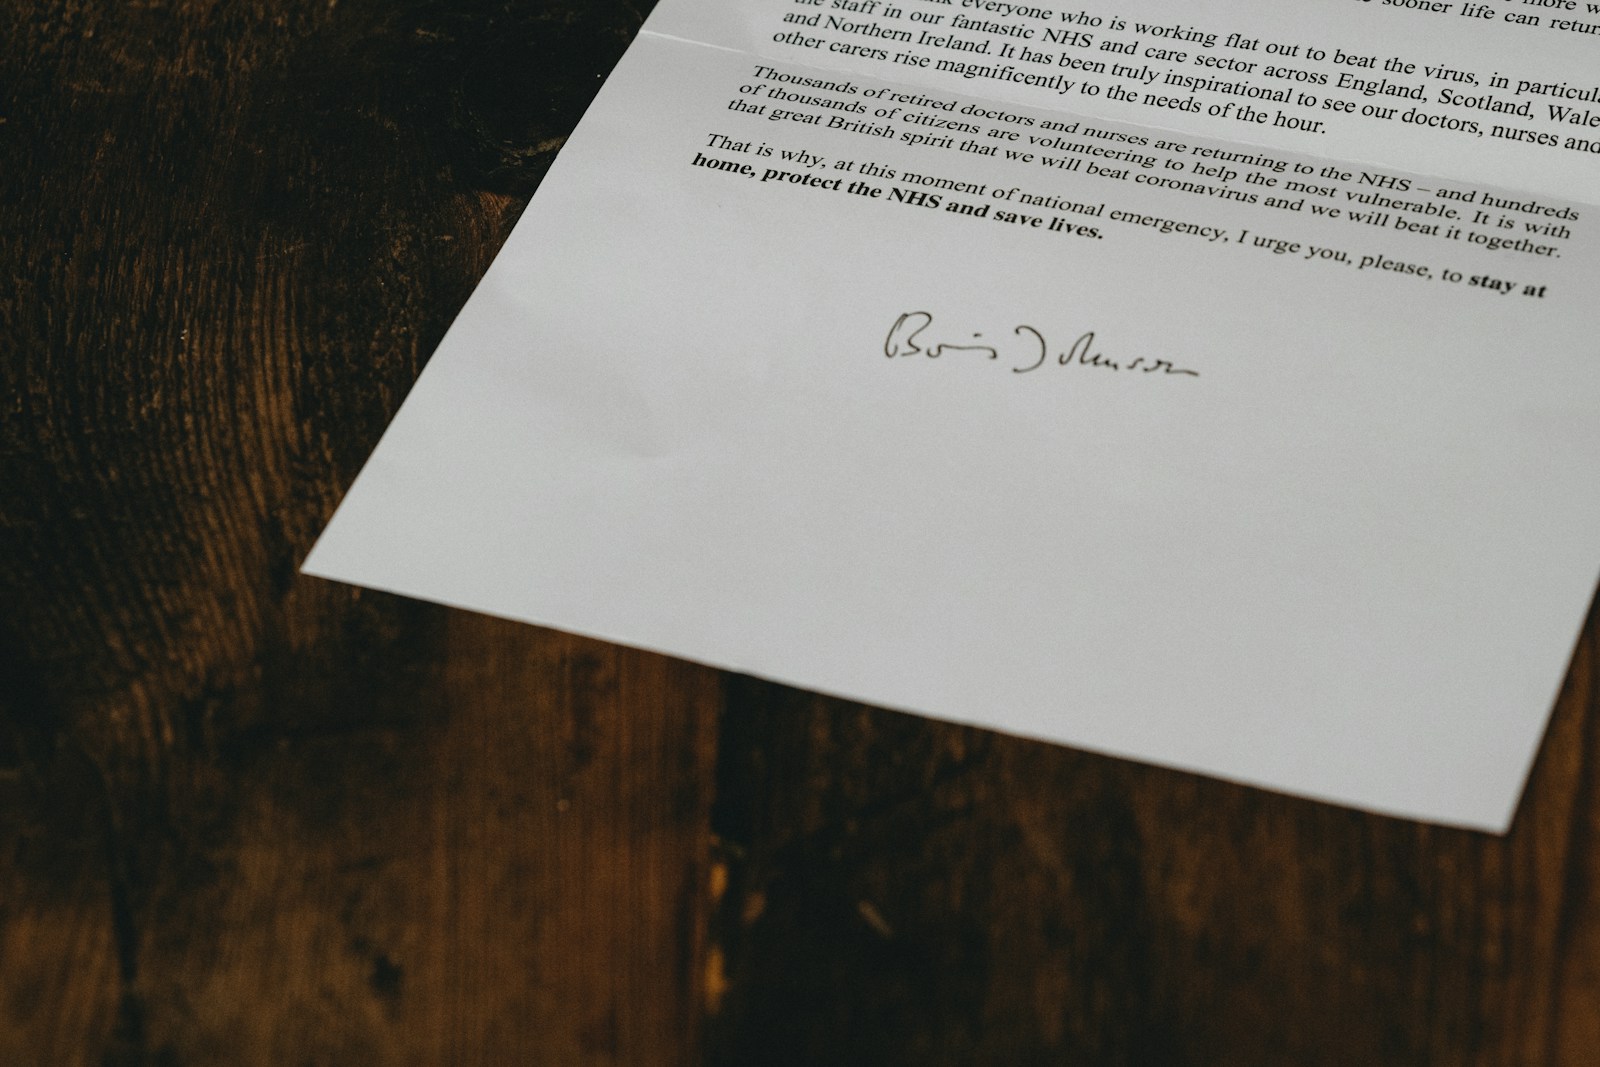 more w
sooner life can retur
everyone who is working flat out to beat the virus, in particula
the staff in our fantastic NHS and care sector across England, Scotland, Wale
and Northern Ireland. It has been truly inspirational to see our doctors, nurses and
other carers rise magnificently to the needs of the hour.
Thousands of retired doctors and nurses are returning to the NHS – and hundreds
of thousands of citizens are volunteering to help the most vulnerable. It is with
that great British spirit that we will beat coronavirus and we will beat it together.
That is why, at this moment of national emergency, I urge you, please, to stay at
home, protect the NHS and save lives.
Boris Johnson